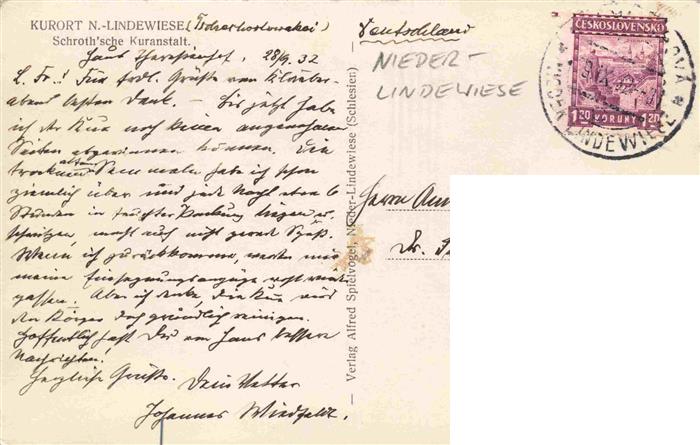 KURORT N.-LINDEWIESE (Tschechoslowakei)
Schroth'sche Kuranstalt.
Haus 28/9. 32
L. Fr.! Für frdl. Grüße vom
abend besten Dank. – Bis jetzt habe
ich der Kur noch keine angenehmen
Seiten abgewinnen können. Die
trockenen alten Semmeln habe ich schon
ziemlich über und jede Nacht etwa 6
Stunden in feuchter Packung liegen u.
schwitzen macht auch nicht gerade Spaß.
Wenn ich zurückkomme, werden mir
meine Einsegnungsanzüge wohl wieder
passen. Aber ich denke, die Kur wird
den Körper doch gründlich reinigen.
Hoffentlich hast Du von Haus bessere
Nachrichten!
Herzliche Grüße. Dein Vetter
Johannes
Verlag Alfred Spielvogel, Nieder-Lindewiese (Schlesien)
Deutschland
NIEDER-
LINDEWIESE
ČESKOSLOVENSKO
1.20 KORUNY 1.20
LINDEWIESE
Herrn
Dr.